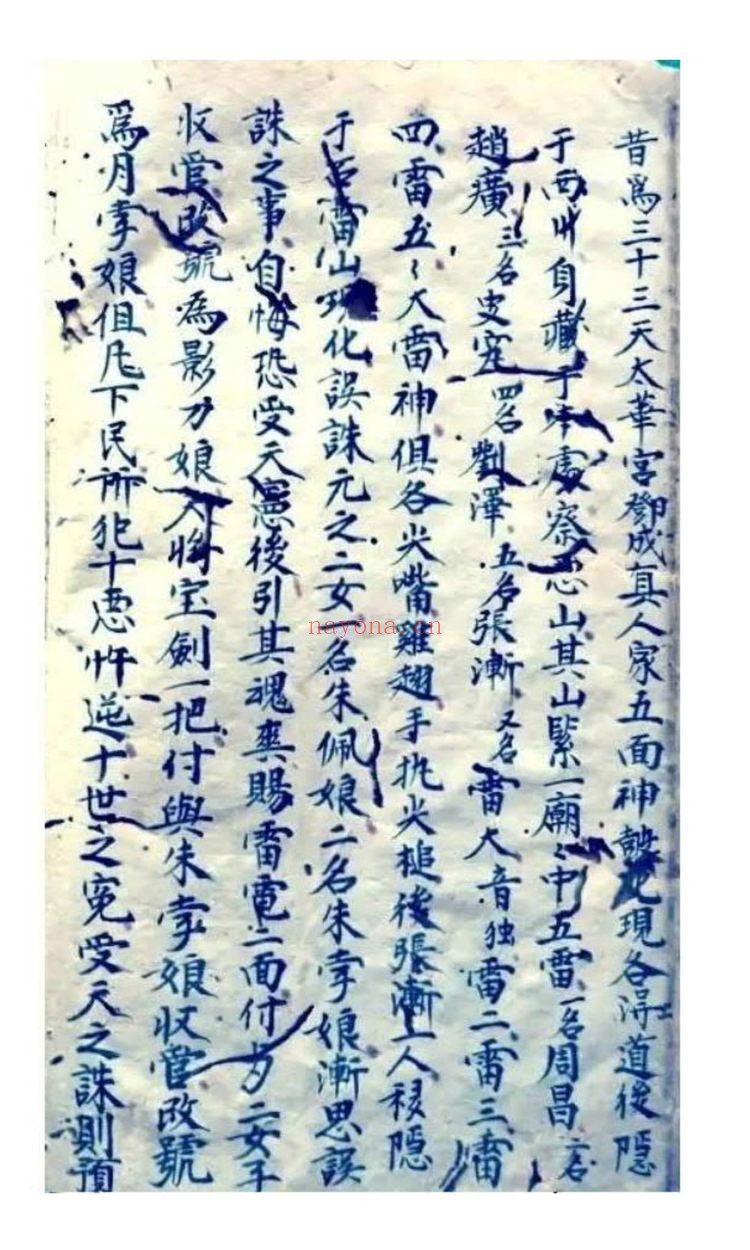 昔為三十三天太華宮鄧成真人家五面神鼓化現各得道後隱
于西州身藏于處察惡山其山緊一廟〻中五雷一名周昌二名
趙廣三名史定四名劉澤五名張漸又名雷大音独雷二雷三雷
四雷五〻大雷神俱各尖嘴雞翅手执尖槌後張漸一人移隱
于石雷山現化誤誅元之二女一名朱佩娘二名朱孛娘漸思誤
誅之事自悔恐受天憲後引其魂與賜雷電二面付为二女子
收管改號為影刀娘入將宝劍一把付與朱孛娘收管改號
為月孛娘但凡下民所犯十惡忤逆十世之冤受天之誅則預
nayona.cn